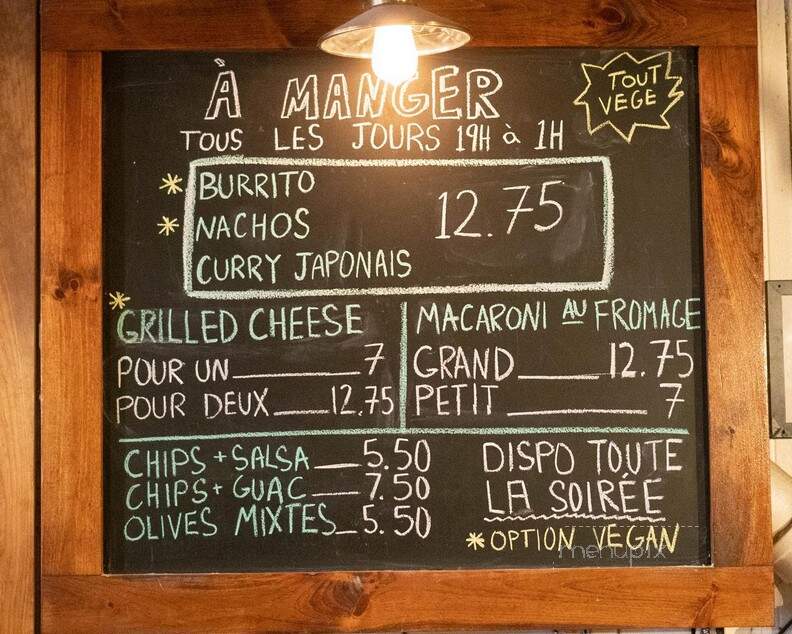 À MANGER
TOUT
VEGE
TOUS LES JOURS 19H à 1H
* BURRITO
* NACHOS
CURRY JAPONAIS
12.75
* GRILLED CHEESE
POUR UN 7
POUR DEUX 12.75
MACARONI AU FROMAGE
GRAND 12.75
PETIT 7
CHIPS + SALSA 5.50
CHIPS + GUAC 7.50
OLIVES MIXTES 5.50
DISPO TOUTE
LA SOIRÉE
* OPTION VEGAN
menupix